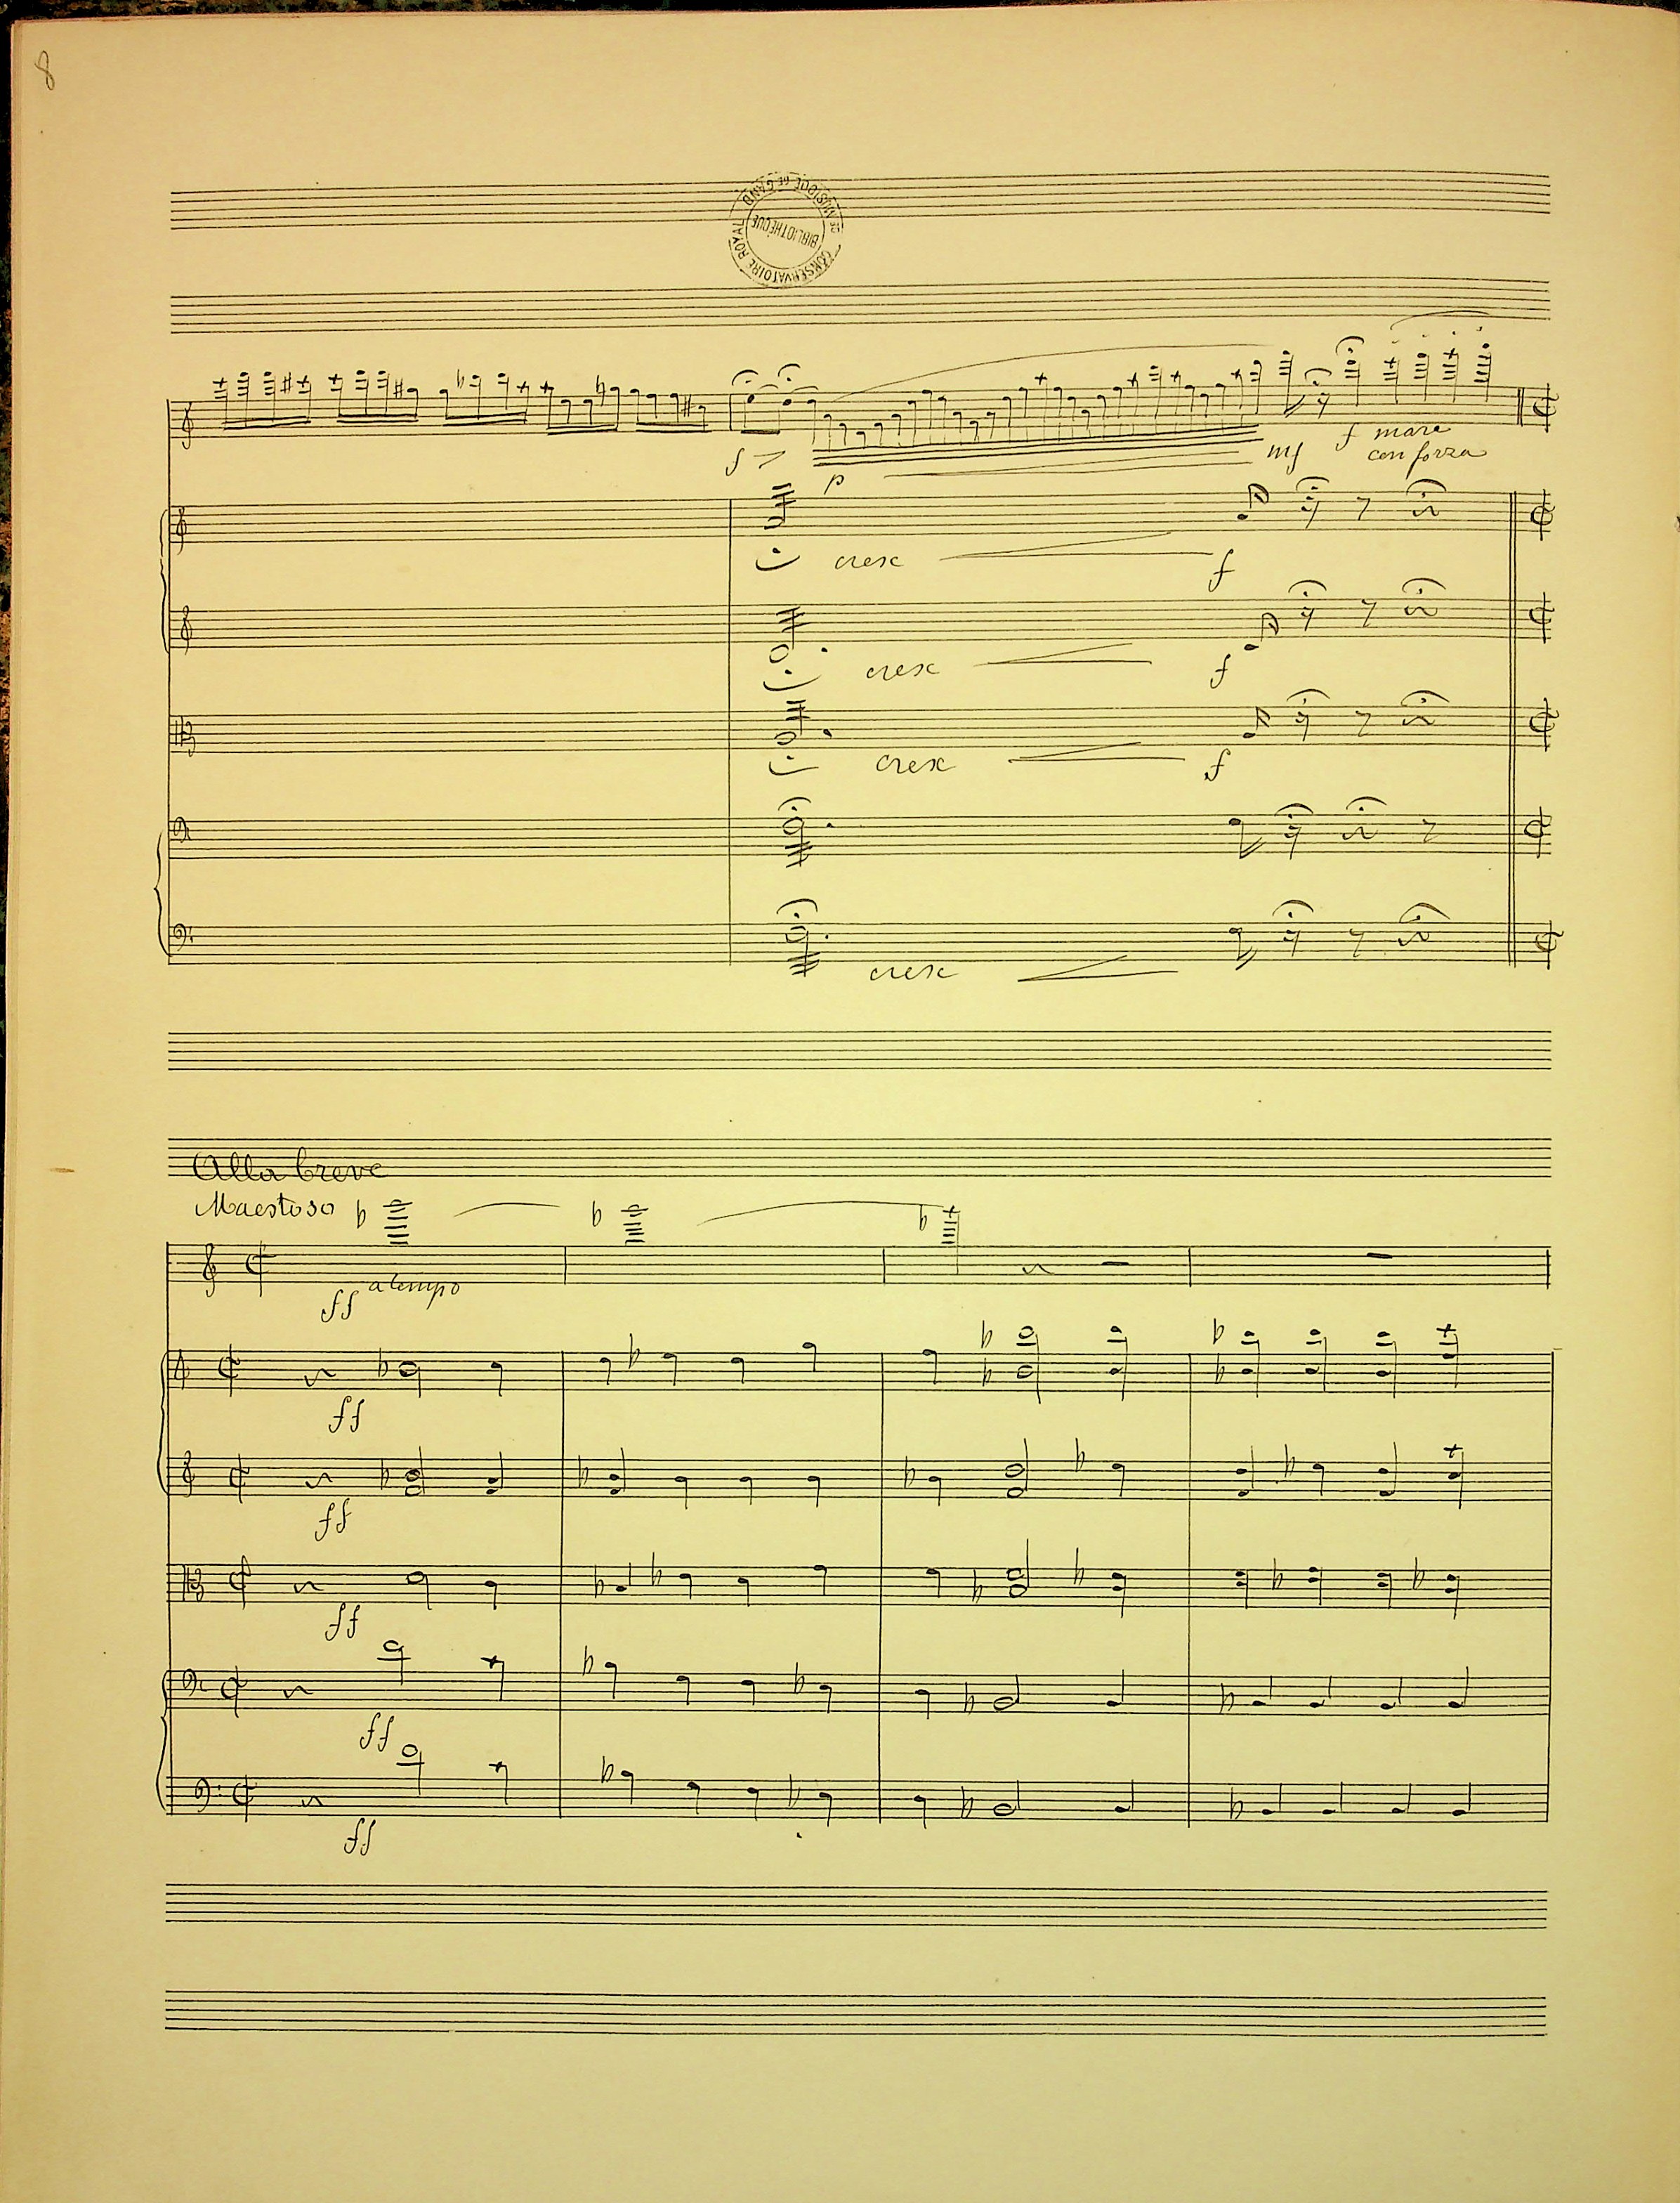 8
CONSERVATOIRE ROYAL DE MUSIQUE DE GAND
BIBLIOTHÈQUE
f
p
mf
f marc
con forza
cresc
f
cresc
f
cresc
f
cresc
Alla breve
Maestoso
a tempo
ff
ff
ff
ff
ff
ff